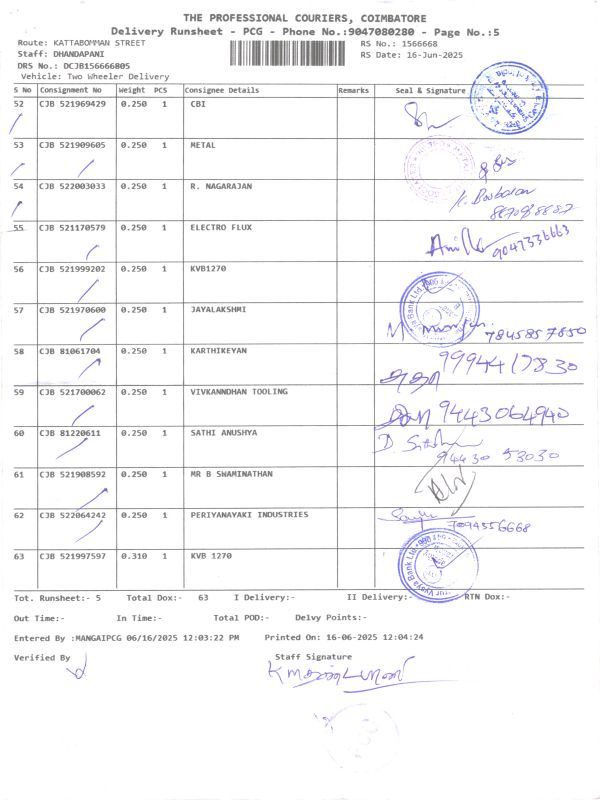 THE PROFESSIONAL COURIERS, COIMBATORE
Delivery Runsheet - PCG - Phone No.:9047080280 - Page No.:5
Route: KATTABOMMAN STREET RS No.: 1566668
Staff: DHANDAPANI RS Date: 16-Jun-2025
DRS No.: DCJB156666805
Vehicle: Two Wheeler Delivery
S No Consignment No Weight PCS Consignee Details Remarks Seal & Signature
52 CJB 521969429 0.250 1 CBI
53 CJB 521909605 0.250 1 METAL
54 CJB 522003033 0.250 1 R. NAGARAJAN
55 CJB 521170579 0.250 1 ELECTRO FLUX 9047336663
56 CJB 521999202 0.250 1 KVB1270
57 CJB 521970600 0.250 1 JAYALAKSHMI 7845857850
58 CJB 81061704 0.250 1 KARTHIKEYAN 9994417830
59 CJB 521700062 0.250 1 VIVKANNDHAN TOOLING 9443064940
60 CJB 81220611 0.250 1 SATHI ANUSHYA 94430 53030
61 CJB 521908592 0.250 1 MR B SWAMINATHAN
62 CJB 522064242 0.250 1 PERIYANAYAKI INDUSTRIES 7094556668
63 CJB 521997597 0.310 1 KVB 1270
Tot. Runsheet:- 5 Total Dox:- 63 I Delivery:- II Delivery:- RTN Dox:-
Out Time:- In Time:- Total POD:- Delvy Points:-
Entered By :MANGAIPCG 06/16/2025 12:03:22 PM Printed On: 16-06-2025 12:04:24
Verified By Staff Signature